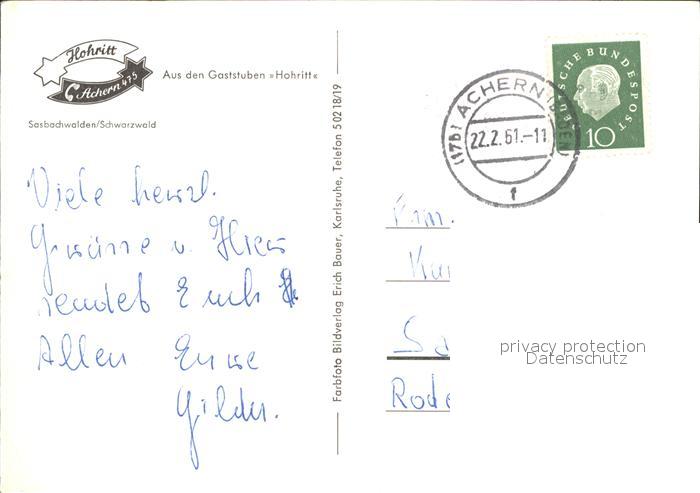 Hohritt
Achern 475
Aus den Gaststuben »Hohritt«
Sasbachwalden/Schwarzwald
Viele herzl.
Grüsse v. Hier
sendet Euch
Allen Eure
Gilda.
Farbfoto Bildverlag Erich Bauer, Karlsruhe, Telefon 5 02 18/19
DEUTSCHE BUNDESPOST
10
(17b) ACHERN (BADEN)
22.2.61.-11
f
Fam.
Rode
privacy protection
Datenschutz